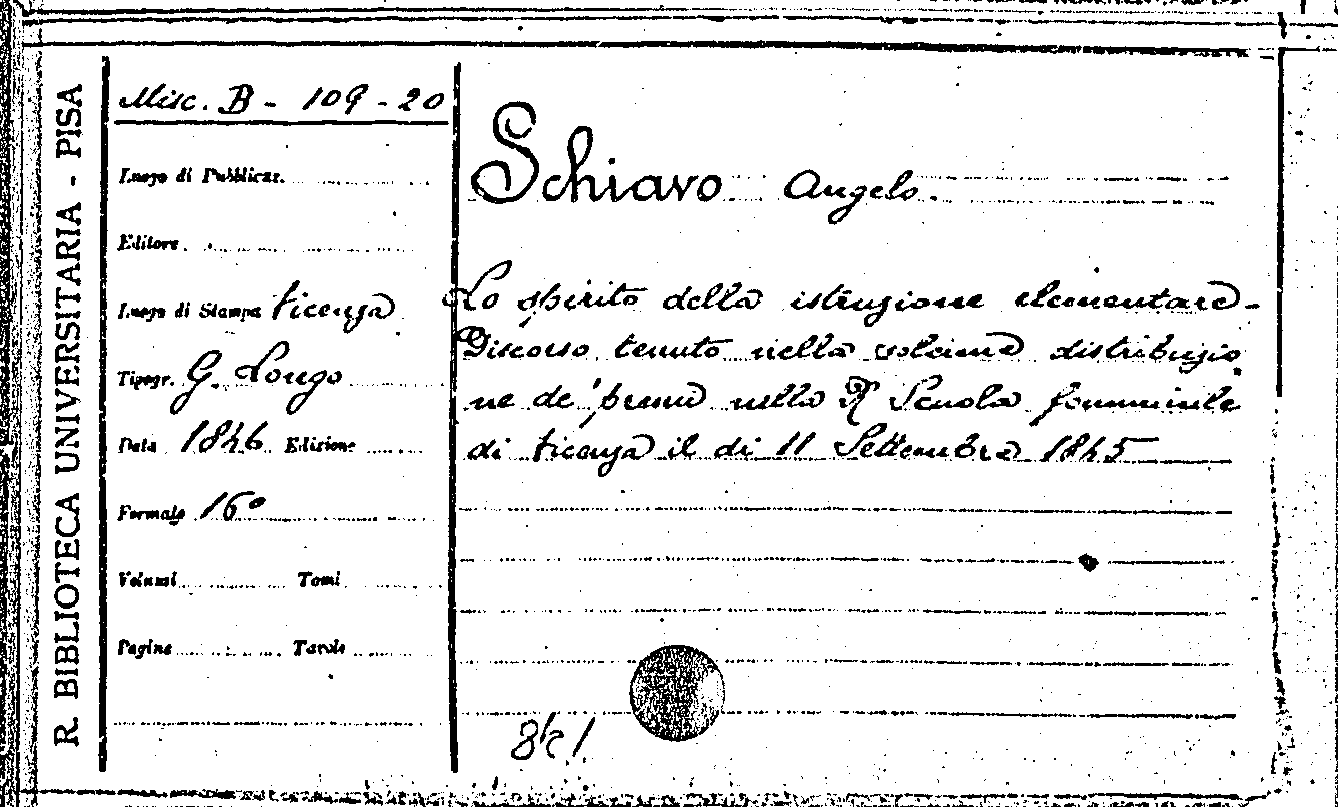 R. BIBLIOTECA UNIVERSITARIA - PISA
Misc. B - 109 - 20
Luogo di Pubblicaz.
Editore
Luogo di Stampa Vicenza
Tipogr. G. Longo
Data 1846 Edizione
Formato 16°
Volumi Tomi
Pagine Tavole
Schiavo Angelo.
Lo spirito della istruzione elementare -
Discorso tenuto nella solenne distribuzio
ne de' premii nella R Scuola femminile
di Vicenza il di 11 Settembre 1845